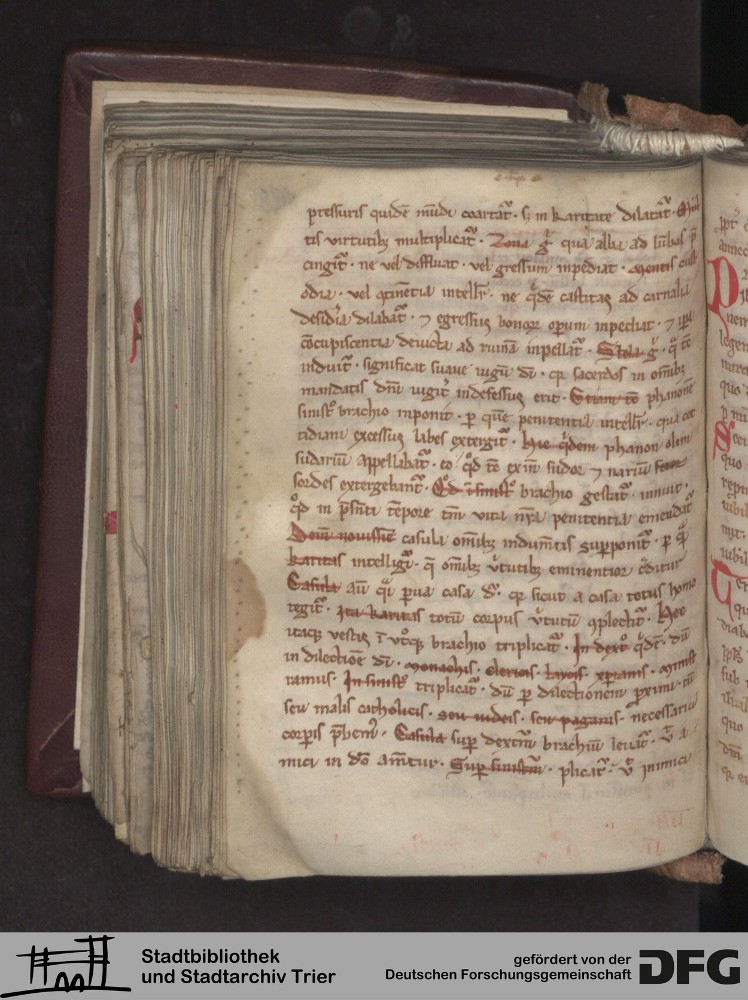 pressuris quidē mūdi coartat᷑ · s; in karitate dilatat᷑ ·
tis virtutib; multiplicat᷑ · Zona g̊ qua alba ad lūbos p̄
cingit᷑ · ne vel diffluat · vel gressum inpediat · mentis cust
odia · vel ꝯtinētia intelli᷑ · ne q̇dē castitas ad carnalia
desid'ia dilabat᷑ · ⁊ egressus bonoꝝ oꝑum inpediat · ⁊ ip̄a
ꝯcupiscentia deuicta ad ruinā inpellat᷑ · Stola g̊ · q̄ tē
induit᷑ · significat suaue iugū dī · qꝛ sacerdos in omīb;
mandatis dn̄i uigit᷑ indefessus erit · phanonē
sinistº brachio inponit · ꝑ quē penitentia intelli᷑ · qua cot
tidiani excessus labes extergit᷑ · Hic q̇dem phanon olim
sudariū appellabat᷑ · eo qd̄ tē exīn sudor ⁊ nariū
sordes extergebant᷑ · Qd̄ ī sinistº brachio gestat᷑ · innuit ·
qd̄ in p̄senti tēpore tm̄ vita nr̄a penitentia emendat᷑
Dein nouissīe casula omīb; indumītis supponit᷑ · ꝑ q̄
karitas intelligi᷑ · q̄ omīb; v̄tutib; eminentior c̄ditur
Casula aū q̄ꝛ parua casa dr̄ · qꝛ sicut a casa totus homo
tegit᷑ · Ita karitas totū corpus v̄tutū ꝯplectit᷑ · Hec
itaq; vestis ī vtºq; brachio triplicat᷑ · In dextº q̇dē · dū
in dilectiōe dī · monachis · clericis · laycis · xp̄ianis · minist
ramus · In sinistº triplicat᷑ · dū ꝑ dilectionem proximi · tā
seu malis catholicis · seu iudeis · seu paganis · necessaria
corꝑis p̄bem᷑ · Casula sup dextrū brachiū leuat᷑ · v̄ a
mici in dō amēt᷑ur · Sup sinistrū · plicat᷑ · v̄ inimici
Stadtbibliothek
und Stadtarchiv Trier
gefördert von der
Deutschen Forschungsgemeinschaft
DFG